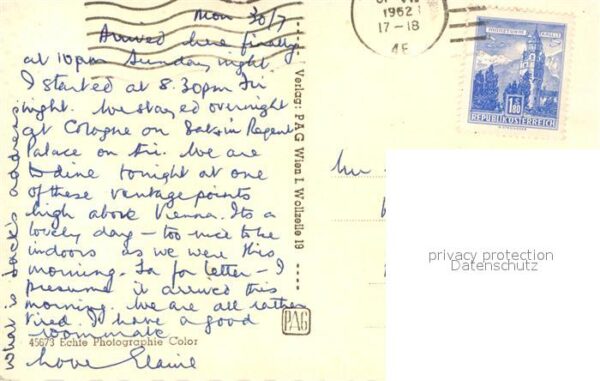 Mon 30/7
Arrived here finally
at 10pm Sunday night.
I started at 8.30pm Fri
night. We stayed overnight
at Cologne on Sat in Regent
Palace on Fri. We are
to dine tonight at one
of these vantage points
high above Vienna. Its a
lovely day – too nice to be
indoors as we were this
morning. Ta for letter – I
presume it arrived this
morning. We are all rather
tired. I have a good
roommate
Love Elaine
What is Jack's address
45673 Echte Photographie Color
Verlag: PAG Wien I. Wollzeile 19
PAG
1962
17-18
1.80
REPUBLIK ÖSTERREICH
privacy protection
Datenschutz